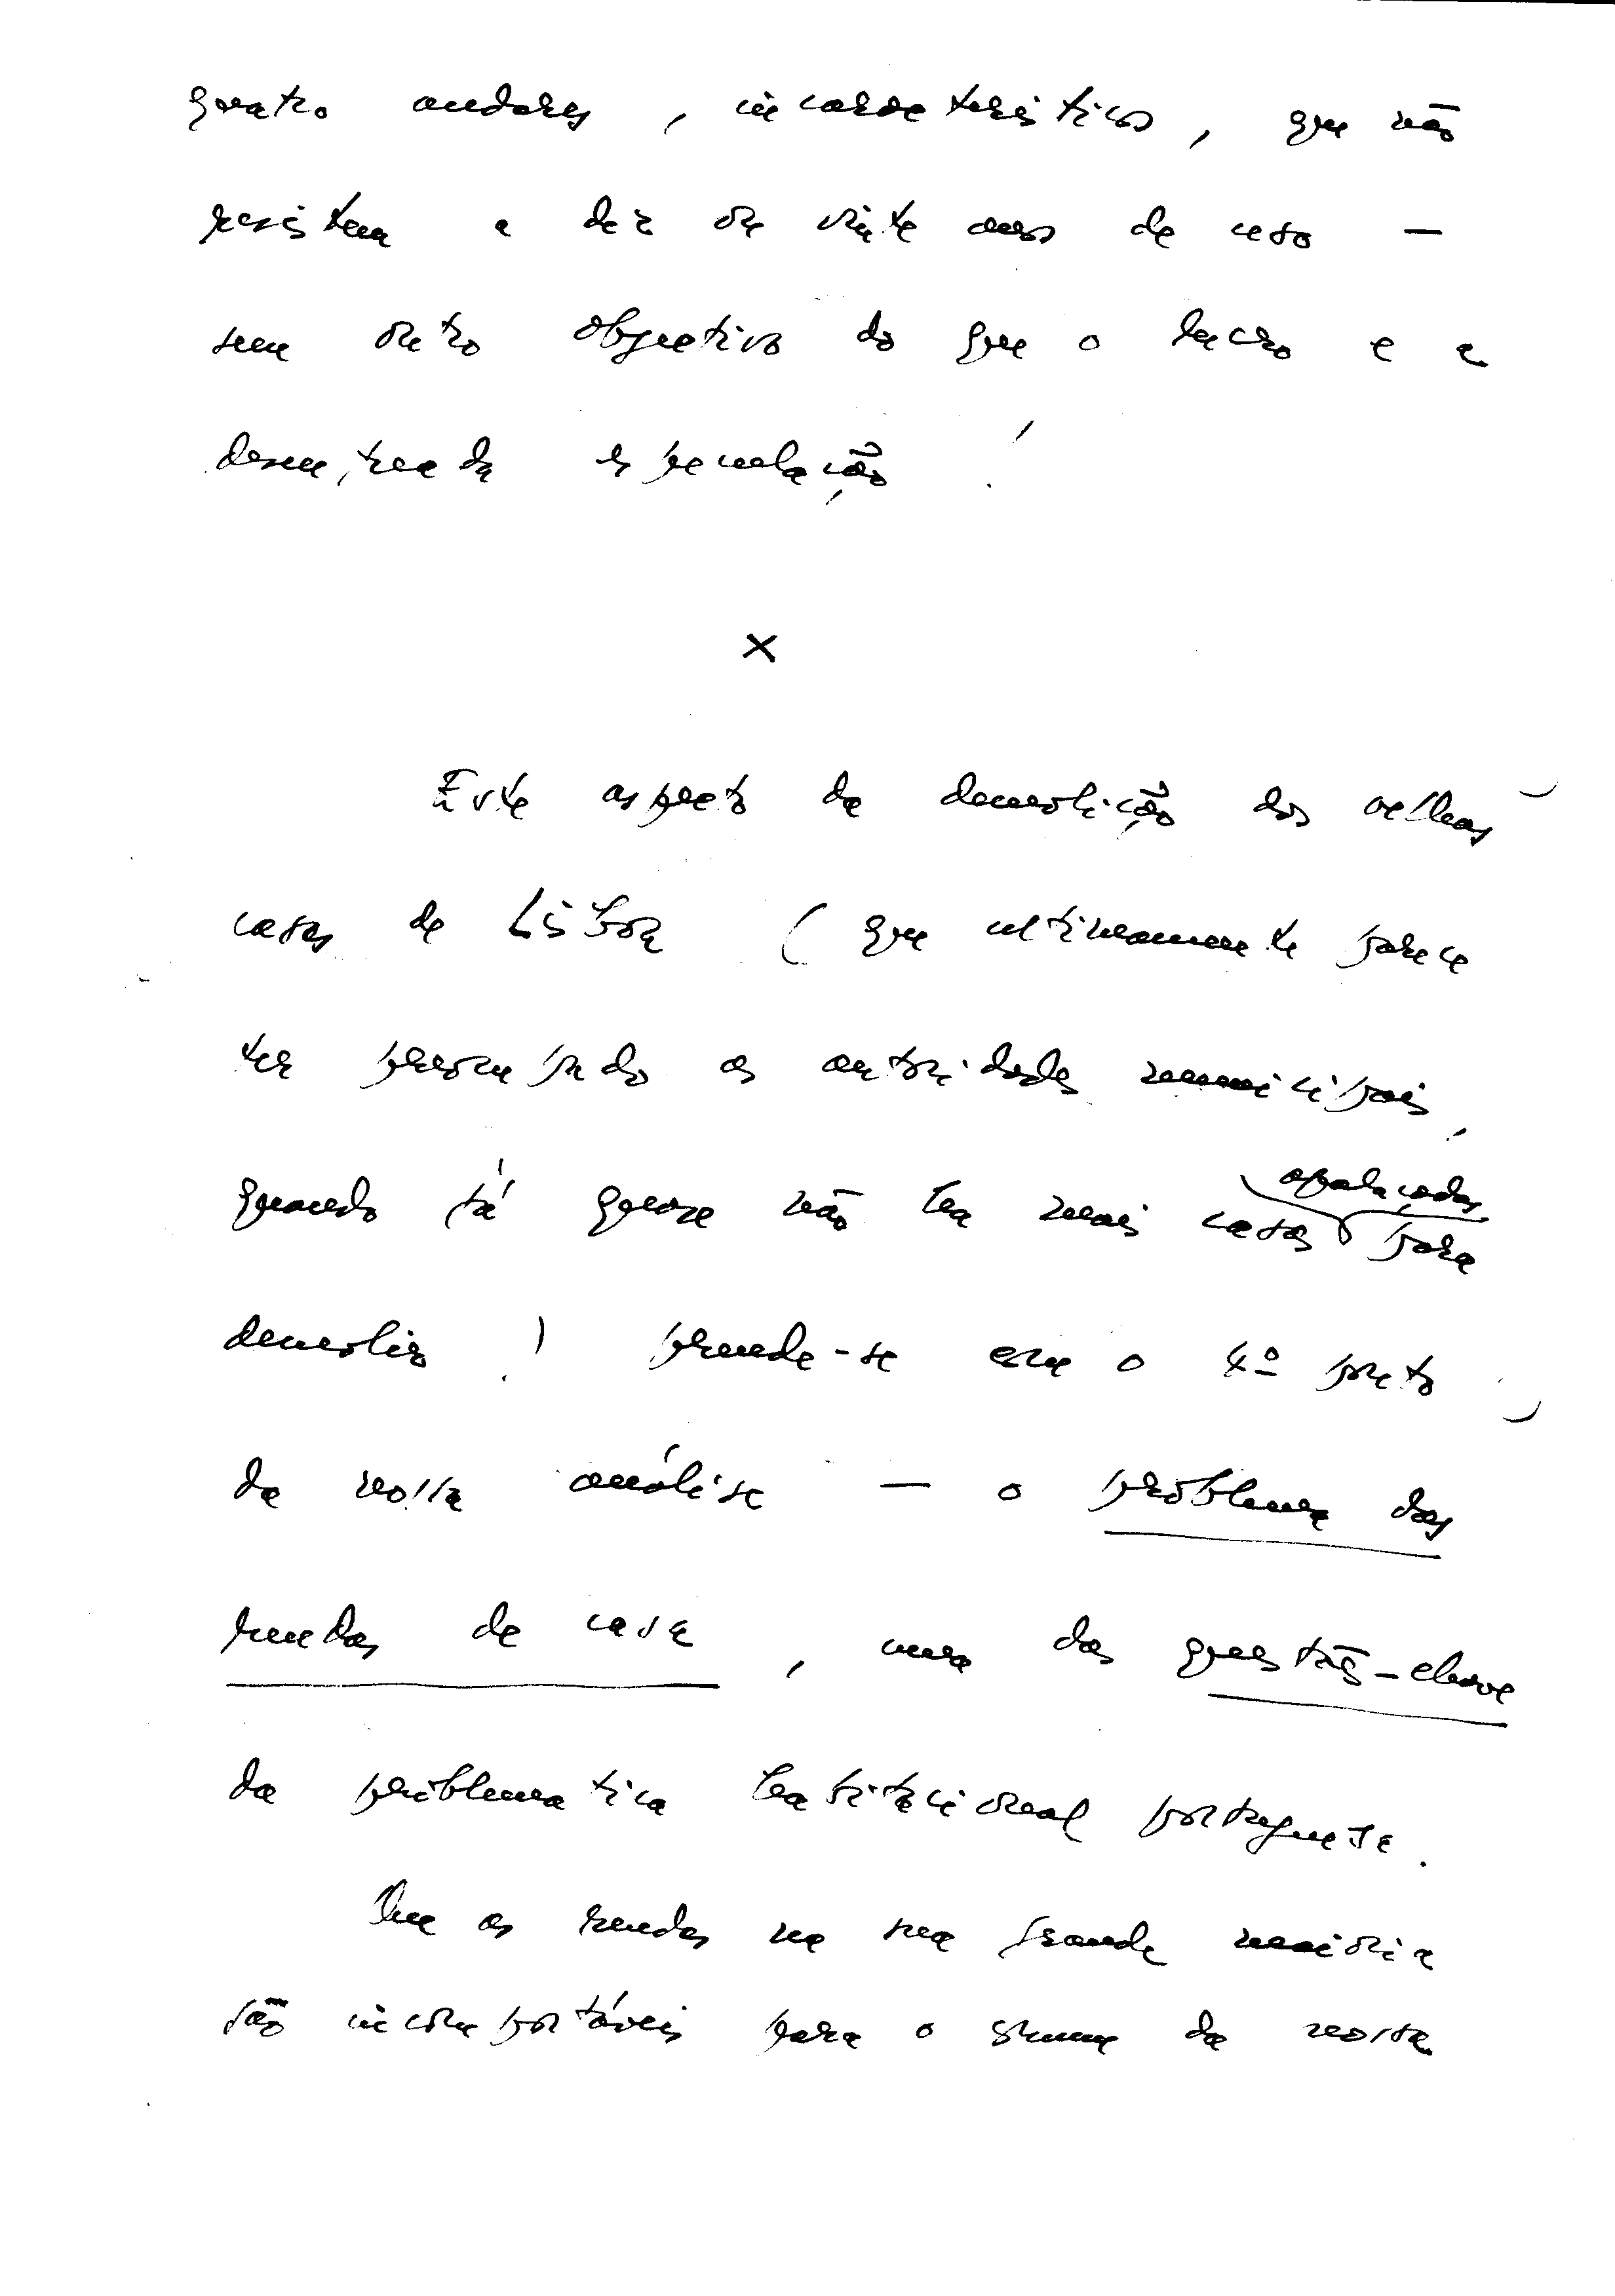 quatro andares, incaracterísticos, que não
resistem a dez ou vinte anos de uso —
sem outro objectivo do que o lucro e a
desenfreada especulação!
×
Este aspecto da demolição das velhas
casas de Lisboa (que ultimamente parece
ter preocupado as autoridades municipais,
quando já quase não há mais casas apalaçadas para
demolir!) prende-se com o 4º ponto
da nossa análise — o problema das
rendas de casa, uma das questões-chave
da problemática habitacional portuguesa.
Que as rendas na sua grande maioria
são incomportáveis para o comum da nossa